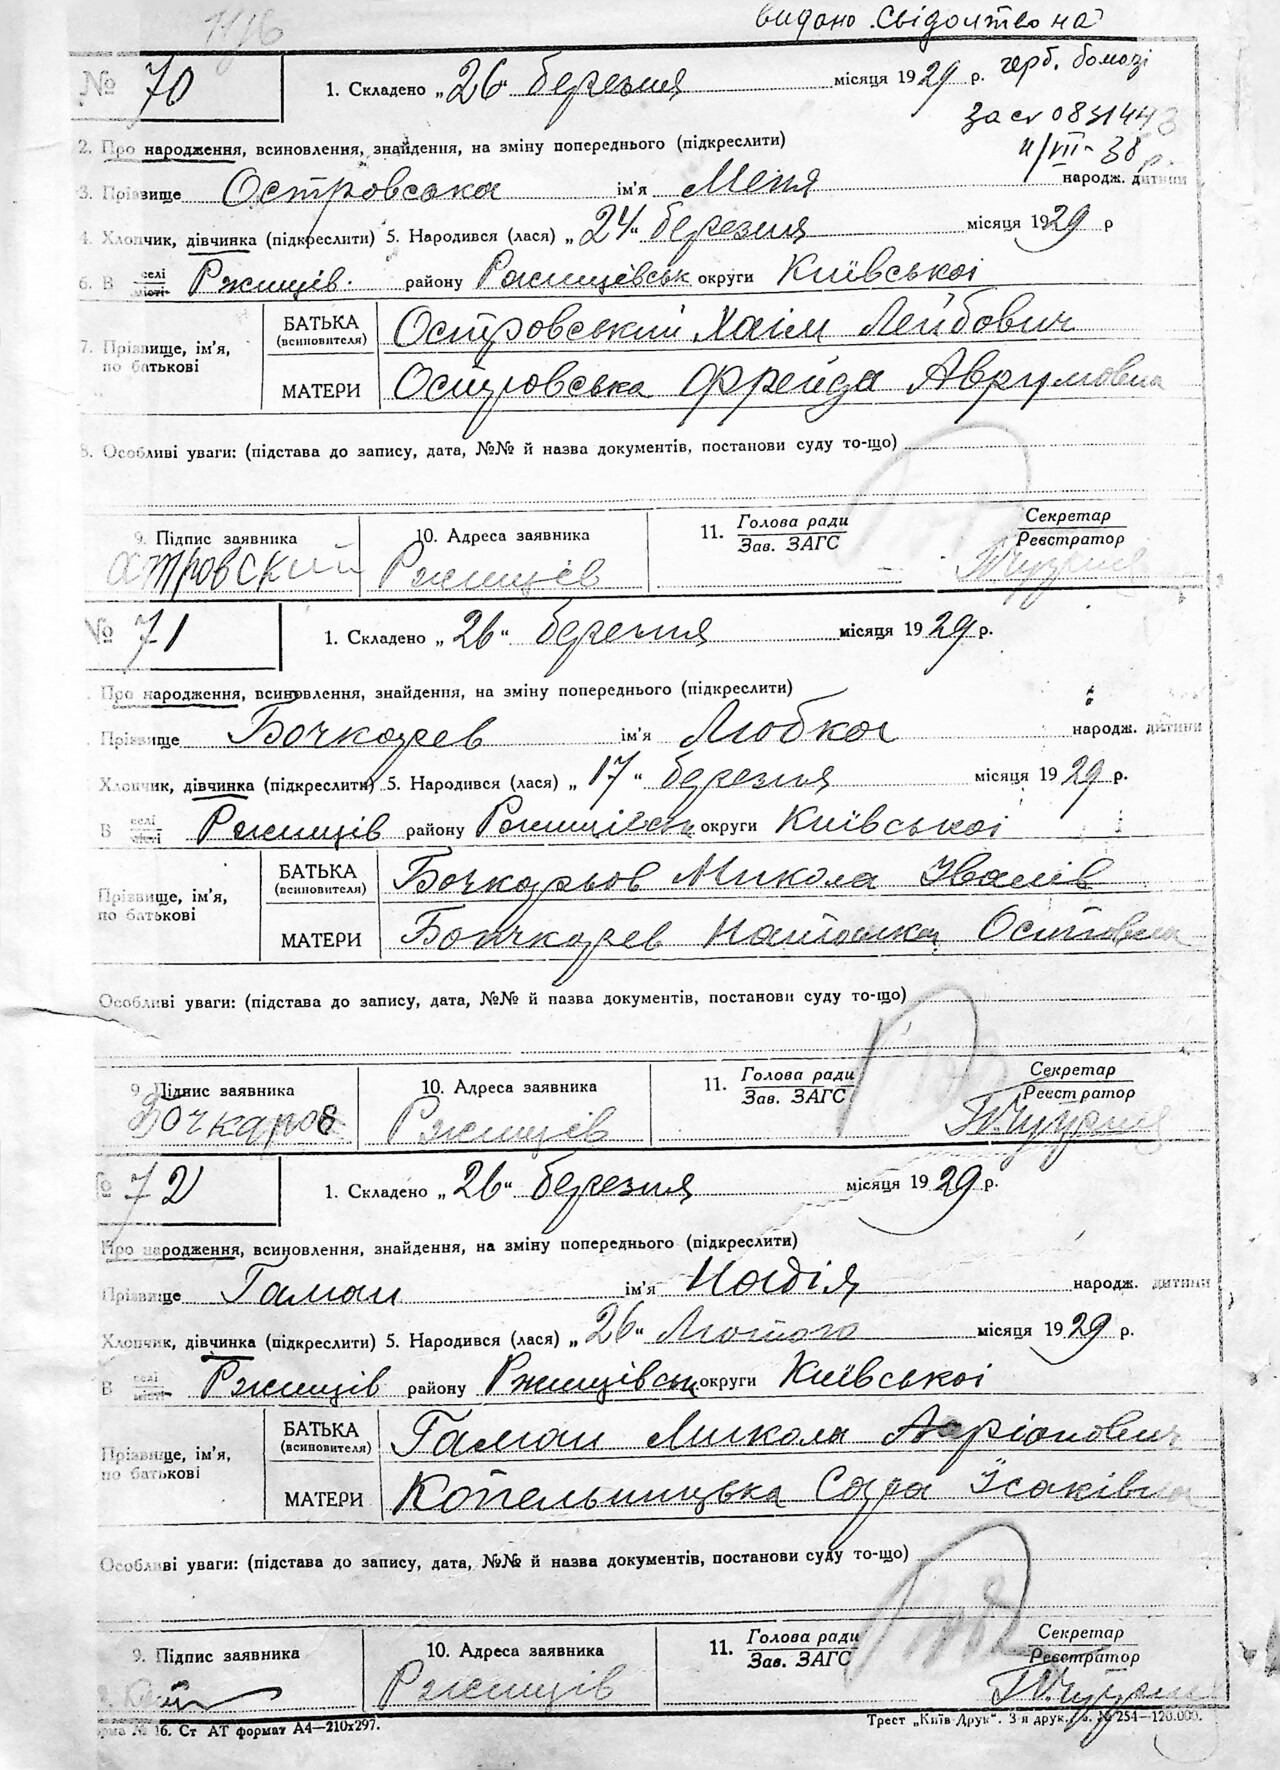 видано свідоцтво на
№ 70 1. Складено „26" березня місяця 1929 р. герб. бомазі
за с 0831443
11/VII-38 р.
2. Про народження, всиновлення, знайдення, на зміну попереднього (підкреслити)
3. Прізвище Островська ім'я Меня народж. дитини
4. Хлопчик, дівчинка (підкреслити) 5. Народився (лася) „24" березня місяця 1929 р
6. В селі місті Ржищів. району Ржищівськ округи Київської
БАТЬКА (всиновителя) Островський Хаім Лейбович
7. Прізвище, ім'я, по батькові
МАТЕРИ Островська Фрейда Аврумовна
8. Особливі уваги: (підстава до запису, дата, №№ й назва документів, постанови суду то-що)
9. Підпис заявника 10. Адреса заявника 11. Голова ради Зав. ЗАГС Секретар Реєстратор
Островский Ржищів
№ 71 1. Складено „26" березня місяця 1929 р.
Про народження, всиновлення, знайдення, на зміну попереднього (підкреслити)
Прізвище Бочкарев ім'я Любка народж. дитини
Хлопчик, дівчинка (підкреслити) 5. Народився (лася) „17" березня місяця 1929 р.
В селі місті Ржищів району Ржищівськ округи Київської
БАТЬКА (всиновителя) Бочкарьов Микола Іванів
Прізвище, ім'я, по батькові
МАТЕРИ Бочкарев Наталка Осиповна
Особливі уваги: (підстава до запису, дата, №№ й назва документів, постанови суду то-що)
9. Підпис заявника 10. Адреса заявника 11. Голова ради Зав. ЗАГС Секретар Реєстратор
Бочкаров Ржищів
№ 72 1. Складено „26" березня місяця 1929 р.
Про народження, всиновлення, знайдення, на зміну попереднього (підкреслити)
Прізвище Гаман ім'я Надія народж. дитини
Хлопчик, дівчинка (підкреслити) 5. Народився (лася) „26" Лютого місяця 1929 р.
В селі місті Ржищів району Ржищівськ округи Київської
БАТЬКА (всиновителя) Гаман Микола Адріанович
Прізвище, ім'я, по батькові
МАТЕРИ Копельницька Сара Ісаківна
Особливі уваги: (підстава до запису, дата, №№ й назва документів, постанови суду то-що)
9. Підпис заявника 10. Адреса заявника 11. Голова ради Зав. ЗАГС Секретар Реєстратор
Ржищів
Форма № 16. Ст АТ формат А4—210х297. Трест „Київ Друк". 3-я друк. № 254—120.000.